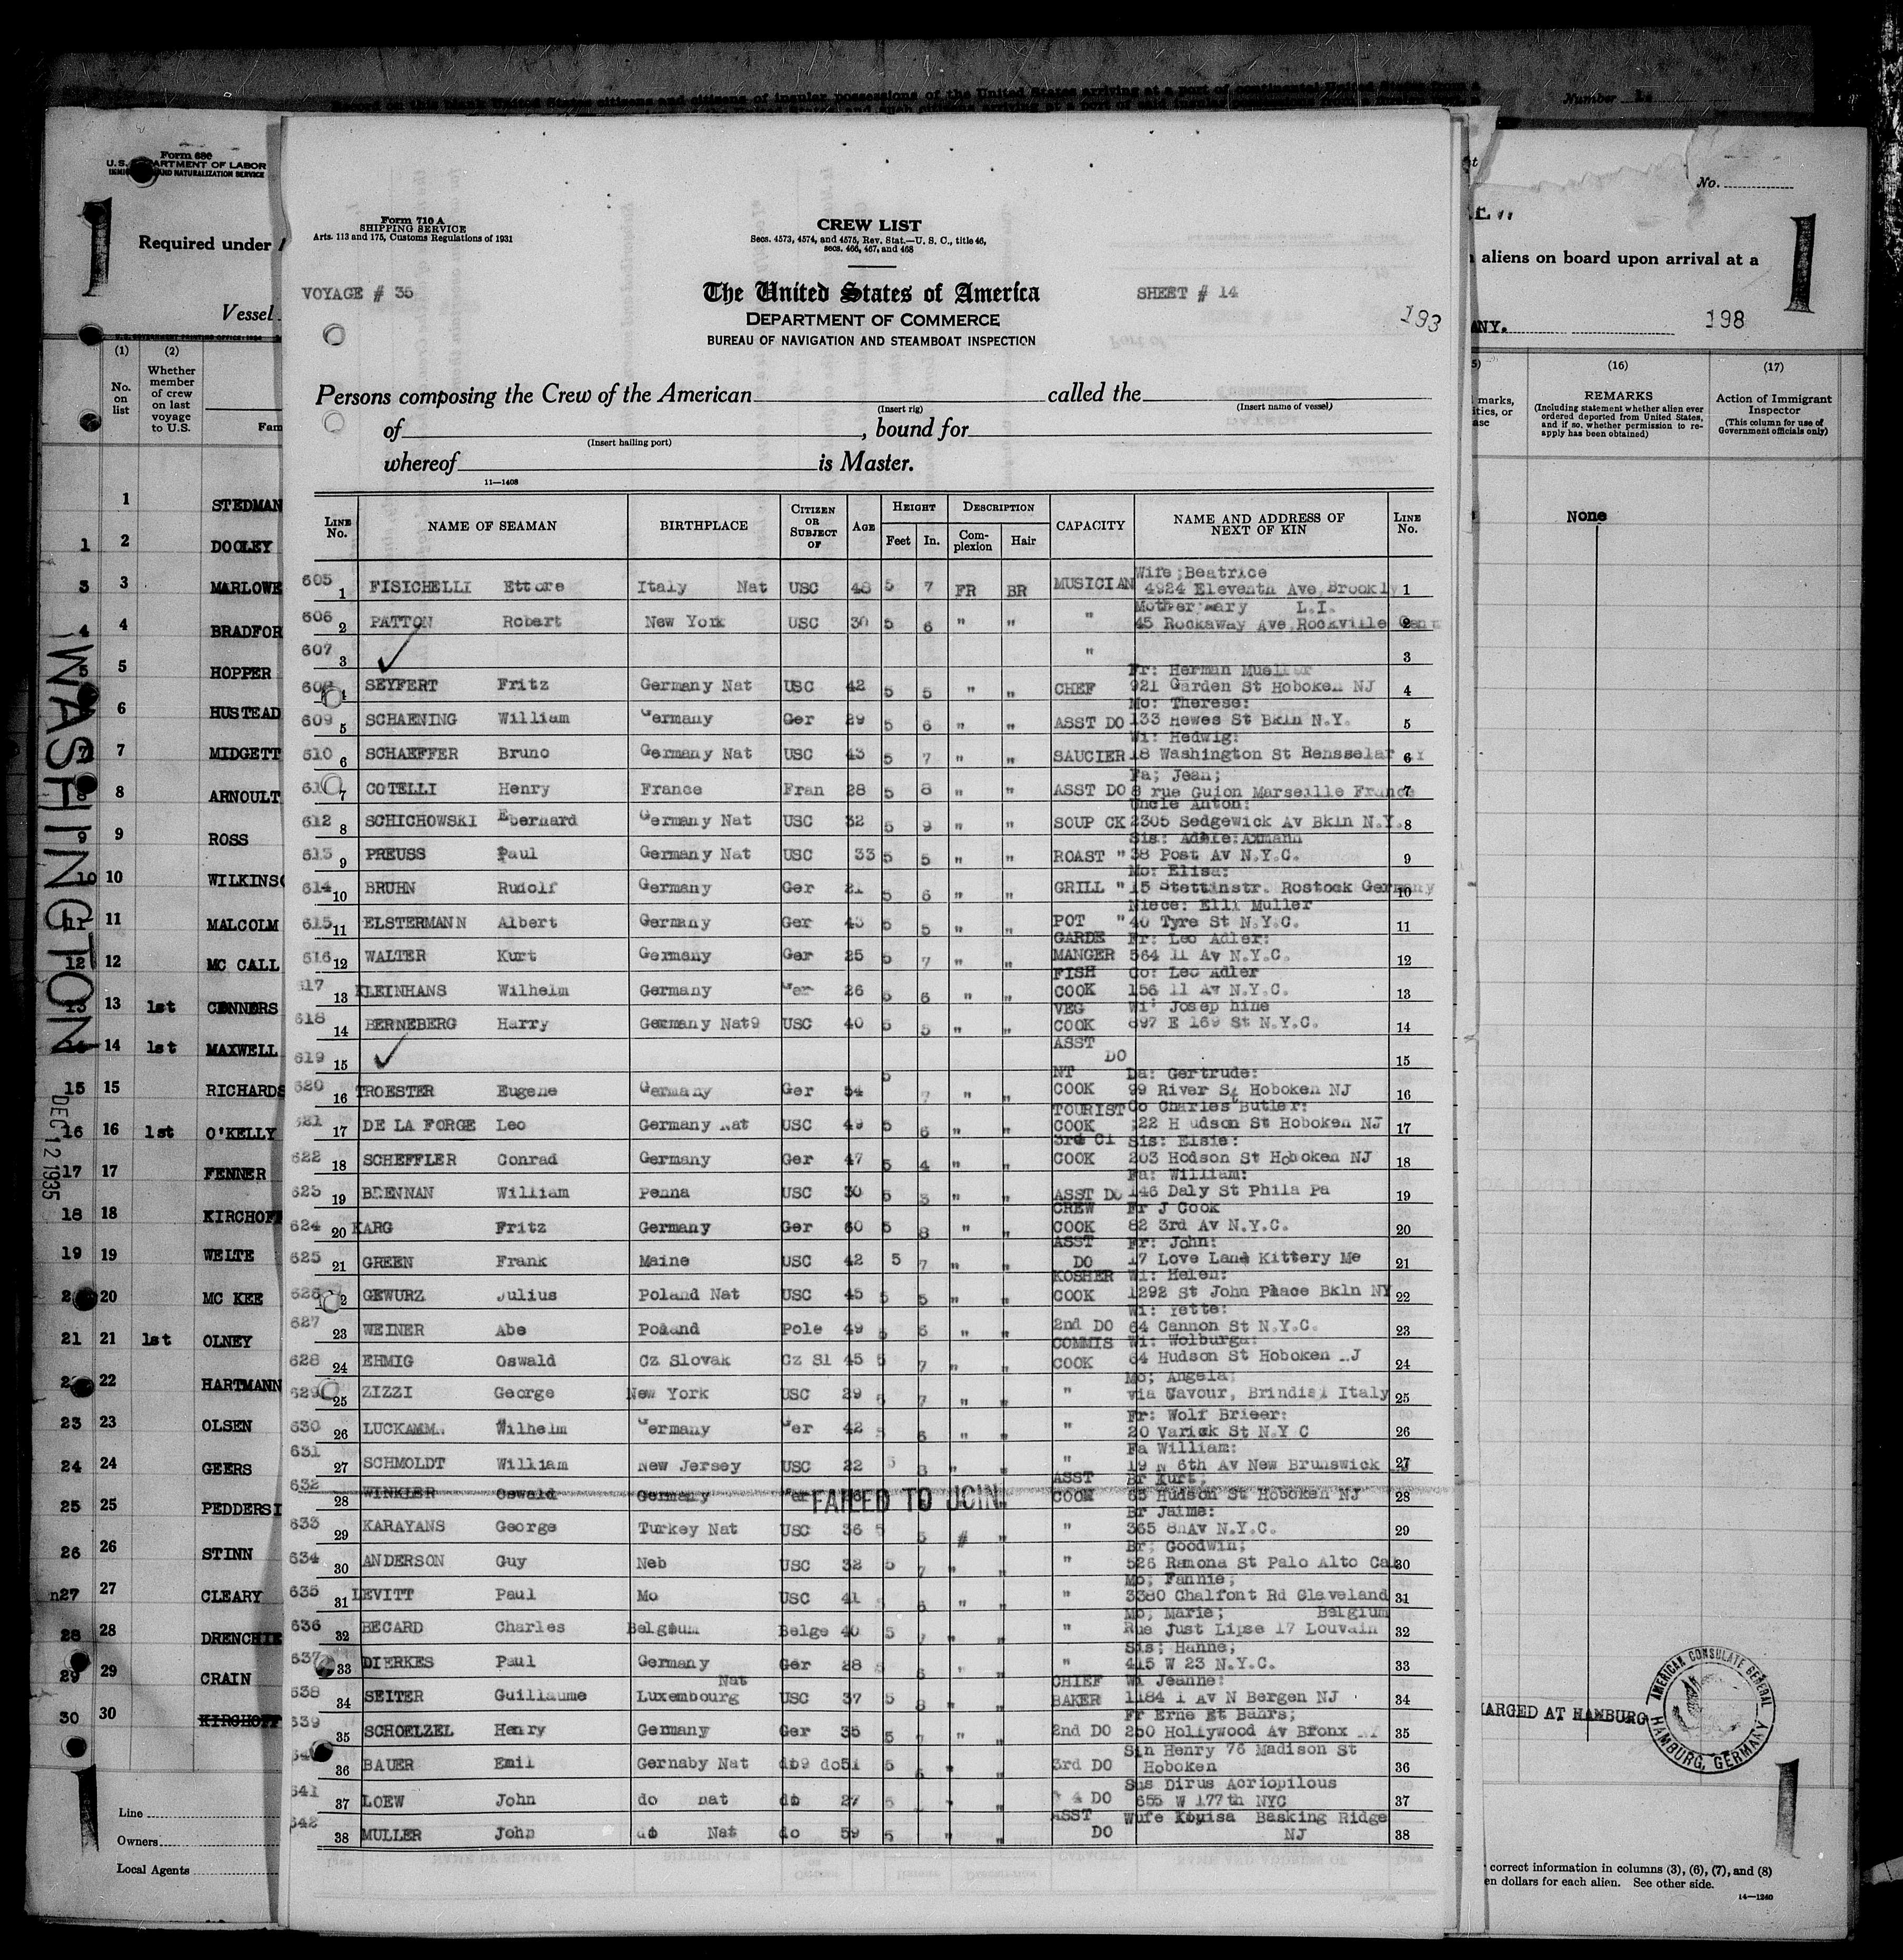 Form 680
U.S. DEPARTMENT OF LABOR
IMMIGRATION AND NATURALIZATION SERVICE
Required under
Vessel
(1) (2)
No. on list
Whether member of crew on last voyage to U.S.
Fam
1 STEDMAN
1 2 DOOLEY
3 3 MARLOWE
4 4 BRADFOR
5 5 HOPPER
6 HUSTEAD
7 7 MIDGETT
8 8 ARNOULT
9 9 ROSS
10 10 WILKINS
11 11 MALCOLM
12 12 MC CALL
13 13 1st CONNERS
14 14 1st MAXWELL
15 15 RICHARDS
16 16 1st O'KELLY
17 17 FENNER
18 18 KIRCHOFF
19 19 WEITE
20 MC KEE
21 21 1st OLNEY
22 HARTMANN
23 23 OLSEN
24 24 GEERS
25 25 PEDDERSI
26 26 STINN
27 27 CLEARY
28 28 DRENCHIE
29 29 CRAIN
30 30 KIRCHOFF
Line
Owners
Local Agents
WASHINGTON
DEC 12 1935
Form 710 A
SHIPPING SERVICE
Arts. 113 and 175, Customs Regulations of 1931
CREW LIST
Secs. 4573, 4574, and 4575, Rev. Stat.—U. S. C., title 46,
secs. 466, 467, and 468
VOYAGE # 35
The United States of America
SHEET # 14
193
DEPARTMENT OF COMMERCE
BUREAU OF NAVIGATION AND STEAMBOAT INSPECTION
Persons composing the Crew of the American called the
(Insert rig) (Insert name of vessel)
of , bound for
(Insert hailing port)
whereof is Master.
11—1408
LINE No. NAME OF SEAMAN BIRTHPLACE CITIZEN OR SUBJECT OF AGE HEIGHT Feet In. DESCRIPTION Complexion Hair CAPACITY NAME AND ADDRESS OF NEXT OF KIN LINE No.
Wife;Beatrice
605 1 FISICHELLI Ettore Italy Nat USC 48 5 7 FR BR MUSICIAN 4924 Eleventh Ave Brookly 1
Mother Mary L.I.
606 2 PATTON Robert New York USC 30 5 6 " " " 45 Rockaway Ave Rockville Cen 2
607 3 " 3
Fr: Herman Mueller
608 4 SEYFERT Fritz Germany Nat USC 42 5 5 " " CHEF 921 Garden St Hoboken NJ 4
Mo: Therese:
609 5 SCHAENING William Germany Ger 29 5 6 " " ASST DO 133 Hewes St Bkln N.Y. 5
Wi: Hedwig:
610 6 SCHAEFFER Bruno Germany Nat USC 43 5 7 " " SAUCIER 18 Washington St Rensselar 6
Fa; Jean;
61 7 COTELLI Henry France Fran 28 5 8 " " ASST DO 8 rue Guion Marseille France 7
Uncle Anton:
612 8 SCHICHOWSKI Eberhard Germany Nat USC 32 5 9 " " SOUP CK 2305 Sedgewick Av Bkln N.Y. 8
Sis: Adele:Axmann
613 9 PREUSS Paul Germany Nat USC 33 5 5 " " ROAST " 38 Post Av N.Y.C. 9
Mo: Elisa:
614 10 BRUHN Rudolf Germany Ger 21 5 6 " " GRILL " 15 Stettinstr. Rostock Germany 10
Niece: Elli Muller
615 11 ELSTERMANN Albert Germany Ger 43 5 5 " " POT " 40 Tyre St N.Y.C. 11
GARDE Fr: Leo Adler:
616 12 WALTER Kurt Germany Ger 25 5 7 " " MANGER 564 11 Av N.Y.C. 12
FISH Co: Leo Adler
617 13 KLEINHANS Wilhelm Germany Ger 26 5 6 " " COOK 156 11 Av N.Y.C. 13
VEG Wi Josep hine
618 14 BERNEBERG Harry Germany Nat9 USC 40 5 5 " " COOK 897 E 169 St N.Y.C. 14
ASST
619 15 DO 15
NT Da: Gertrude:
620 16 TROESTER Eugene Germany Ger 54 5 7 " " COOK 99 River St Hoboken NJ 16
TOURIST Co Charles Butler:
621 17 DE LA FORGE Leo Germany Nat USC 49 5 6 " " COOK 22 H udson St Hoboken NJ 17
3rd Cl Sis: Elsie:
622 18 SCHEFFLER Conrad Germany Ger 47 5 4 " " COOK 203 Hodson St Hoboken NJ 18
Fa: William:
623 19 BRENNAN William Penna USC 30 5 3 " " ASST DO 146 Daly St Phila Pa 19
CREW Fr J Cook
624 20 KARG Fritz Germany Ger 60 5 8 " " COOK 82 3rd Av N.Y.C. 20
ASST Fr: John:
625 21 GREEN Frank Maine USC 42 5 7 " " DO 17 Love Land Kittery Me 21
KOSHER Wi: Helen:
626 22 GEWURZ Julius Poland Nat USC 45 5 5 " " COOK 1292 St John Place Bkln NY 22
Wi: Yette:
627 23 WEINER Abe Poland Pole 49 5 6 " " 2nd DO 64 Cannon St N.Y.C. 23
COMMIS Wi: Wolburga:
628 24 EHMIG Oswald Cz Slovak Cz Sl 45 5 7 " " COOK 64 Hudson St Hoboken J 24
Mo; Angela;
629 25 ZIZZI George New York USC 29 5 7 " " " via Cavour, Brindisi Italy 25
Fr: Wolf Brieer:
630 26 LUCKAMM. Wilhelm Germany Ger 42 5 6 " " " 20 Varick St N.Y C 26
Fa William:
631 27 SCHMOLDT William New Jersey USC 22 5 8 " " " 19 N 6th Av New Brunswick 27
ASST Br Kurt;
632 28 WINKLER Oswald Germany Ger FAILED TO JOIN. COOK 65 Hudson St Hoboken NJ 28
Br Jaime:
633 29 KARAYANS George Turkey Nat USC 36 5 5 # " " 365 8hAv N.Y.C. 29
Br; Goodwin;
634 30 ANDERSON Guy Neb USC 32 5 7 " " " 526 Ramona St Palo Alto Cal 30
Mo; Fannie;
635 31 LEVITT Paul Mo USC 41 5 6 " " " 3380 Chalfont Rd Cleveland 31
Mo; Marie; Belgium
636 32 BECARD Charles Belgium Belge 40 5 7 " " " Rue Just Lipse 17 Louvain 32
Sis; Hanne;
637 33 DIERKES Paul Germany Ger 28 5 6 " " " 415 W 23 N.Y.C. 33
Nat CHIEF Wi Jeanne:
638 34 SEITER Guillaume Luxembourg USC 37 5 8 " " BAKER 1184 1 Av N Bergen NJ 34
Fr Erne Et Bahrs;
639 35 SCHOELZEL Henry Germany Ger 35 5 7 " " 2nd DO 250 Hollywood Av Bronx 35
Sin Henry 76 Madison St
36 BAUER Emil Gernaby Nat do9 do51 5 6 " " 3rd DO Hoboken 36
Sus Dirus Acriopilous
641 37 LOEW John do nat do 27 5 " " 4 DO 655 W 177th NYC 37
ASST Wufe Louisa Basking Ridge
642 38 MULLER John do Nat do 59 5 " " DO NJ 38
No.
aliens on board upon arrival at a
ANY. 198
(16) (17)
REMARKS
(Including statement whether alien ever ordered deported from United States, and if so, whether permission to reapply has been obtained)
Action of Immigrant Inspector
(This column for use of Government officials only)
None
ARGED AT HAMBURG
AMERICAN CONSULATE GENERAL
HAMBURG, GERMANY
correct information in columns (3), (6), (7), and (8)
en dollars for each alien. See other side.
14—1240